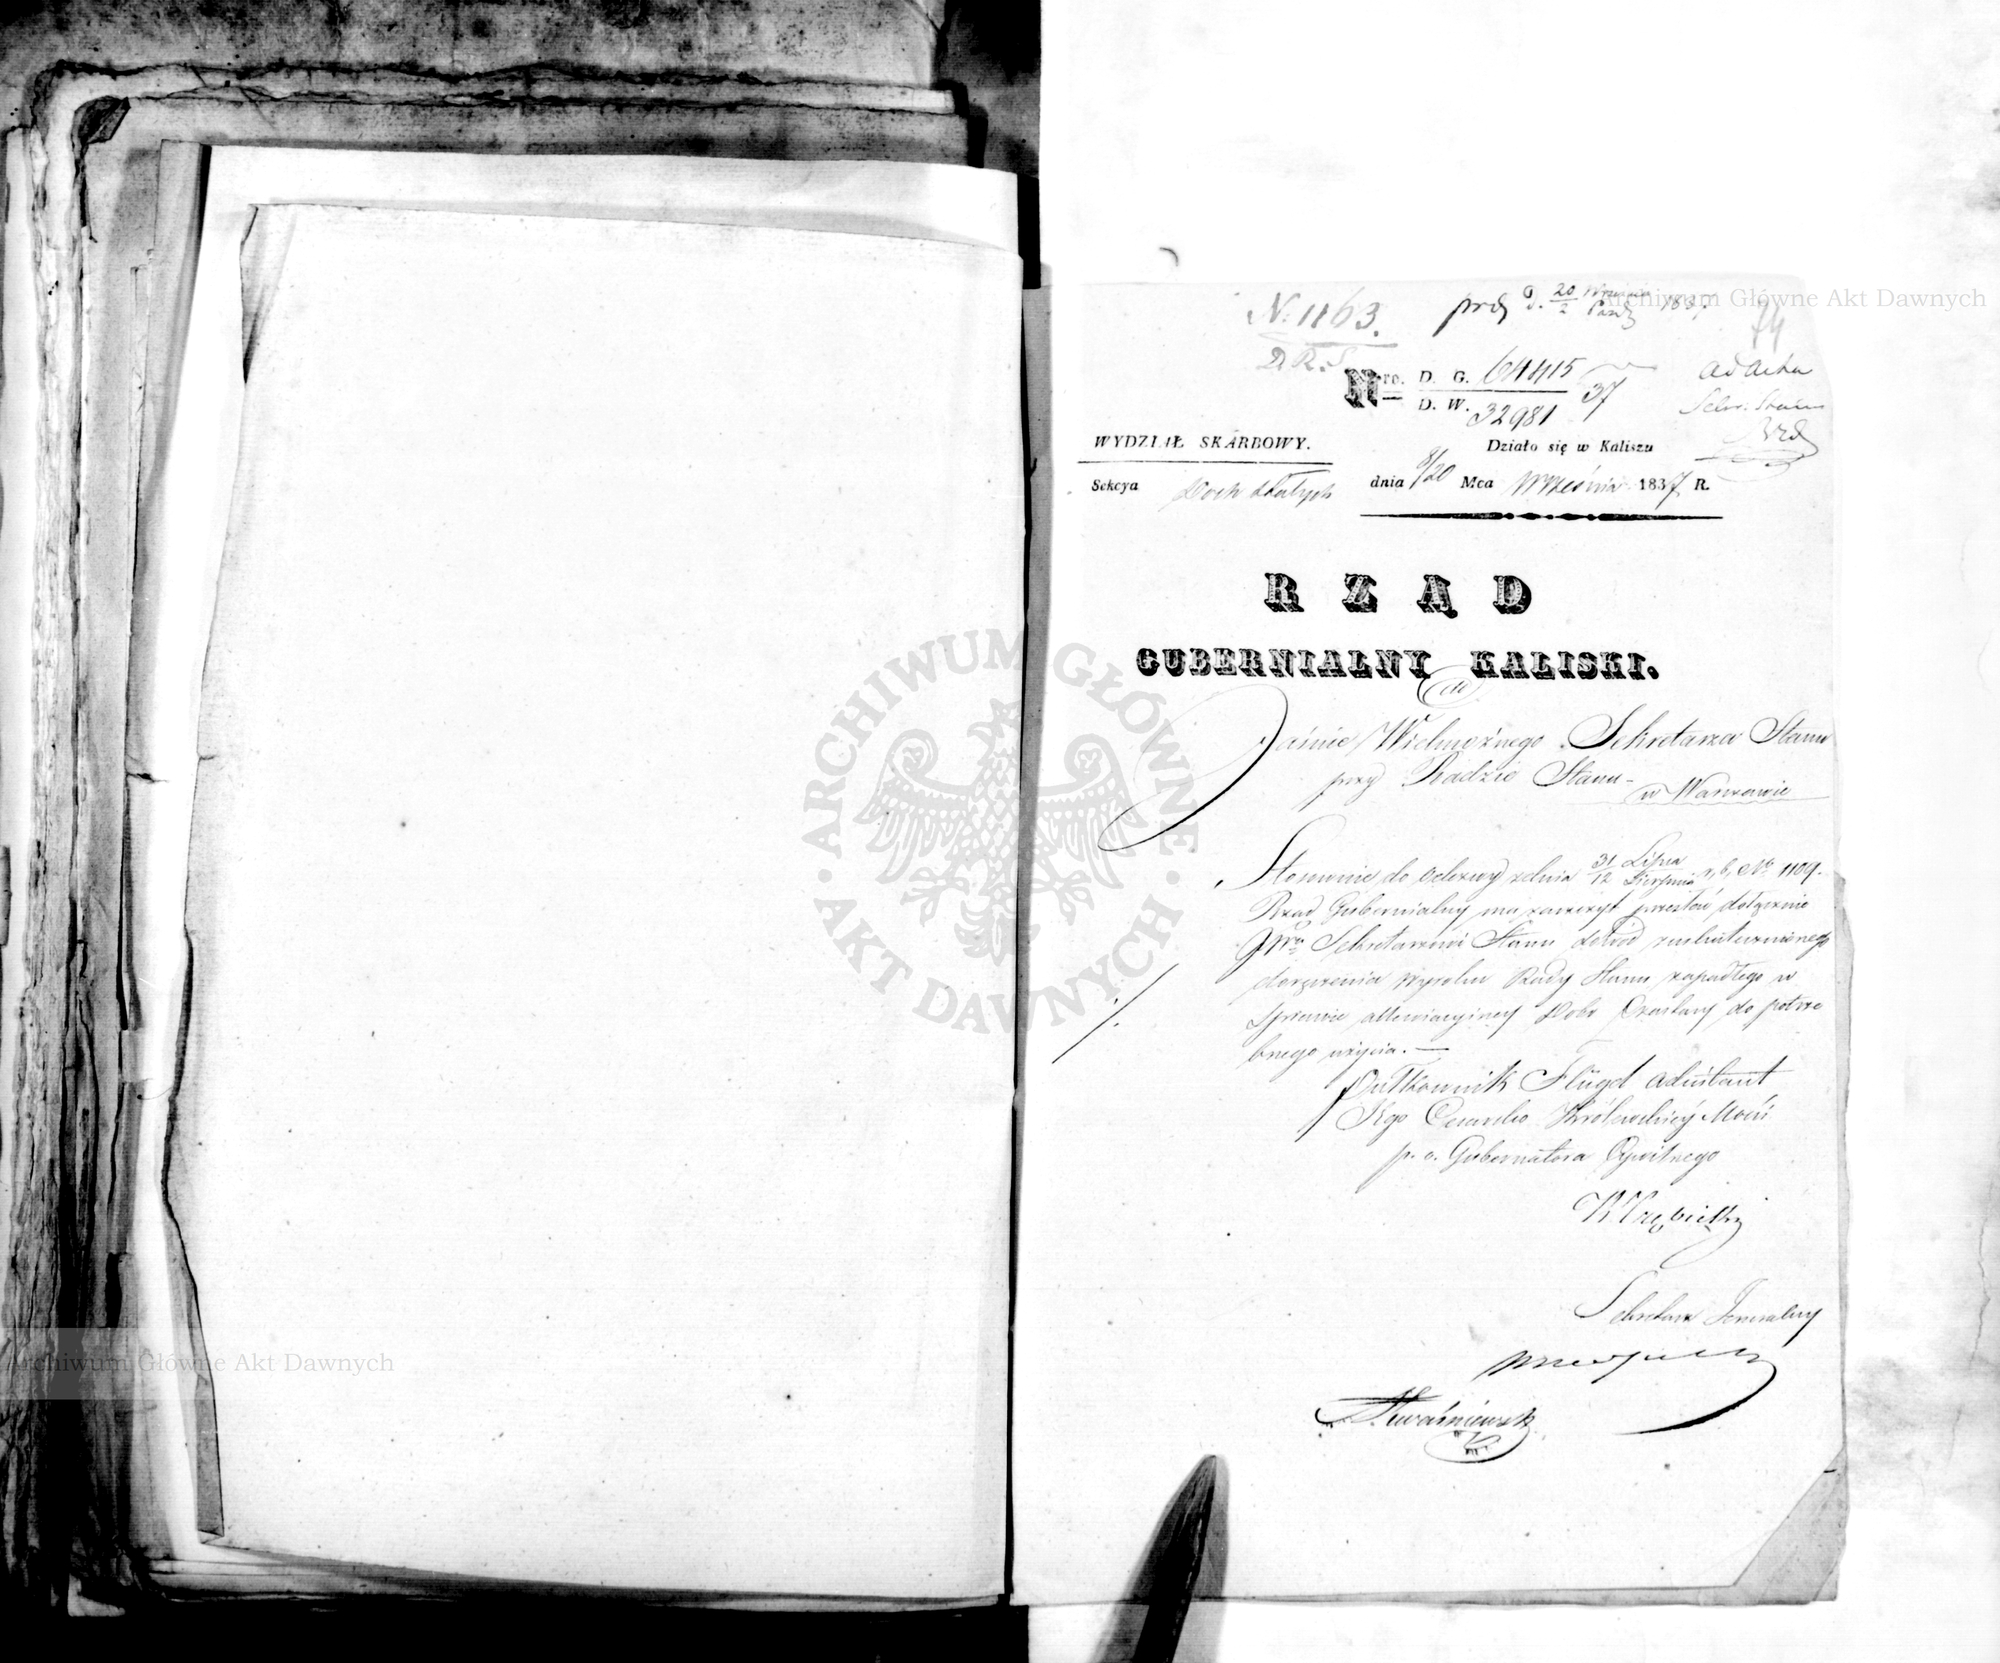 N. 1163.
D. R. S.
prd d. 20/2 Września/Paźd 1837
74
ad acta
Sekr. Stanu
Nro. D. G. 64415
D. W. 32981 37
WYDZIAŁ SKARBOWY.
Działo się w Kaliszu
Sekcya Doch Stałych
dnia 8/20 Mca Września 1837 R.
RZĄD
GUBERNIALNY KALISKI.
do
Jaśnie Wielmożnego Sekretarza Stanu
przy Radzie Stanu
w Warszawie
Stosownie do odezwy z dnia 31/12 Lipca/Sierpnia r, b, No 1109.
Rząd Gubernialny ma zaszczyt przesłać dołącznie
JWmu Sekretarzowi Stanu dowód uskutecznionego
doręczenia wyroku Rady Stanu zapadłego w
sprawie Dóbr do potrze
bnego użycia. —
Pułkownik Flügel Adiutant
Jego Cesarsko Królewskiéy Mości
p. o. Gubernatora Cywilnego
Sekretarz Jeneralny
Archiwum Główne Akt Dawnych
Archiwum Główne Akt Dawnych
ARCHIWUM GŁÓWNE · AKT DAWNYCH ·